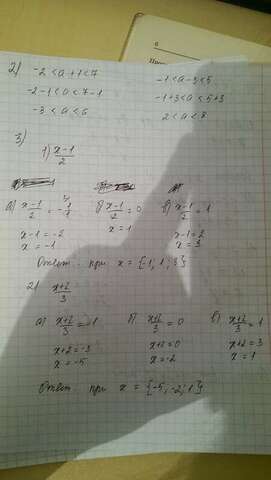 2) -2 < a+1 < 7 -1 < a-3 < 5
-2-1 < a < 7-1 -1+3 < a < 5+3
-3 < a < 6 2 < a < 8
3)
1) x-1/2
а) x-1/2 = -1 б) x-1/2 = 0 в) x-1/2 = 1
x-1 = -2 x = 1 x-1 = 2
x = -1 x = 3
Ответ: при x = {1, 1, 3}
2) x+2/3
а) x+2/3 = -1 б) x+2/3 = 0 в) x+2/3 = 1
x+2 = -3 x+2 = 0 x+2 = 3
x = -5 x = -2 x = 1
Ответ: при x = {-5, -2, 1}